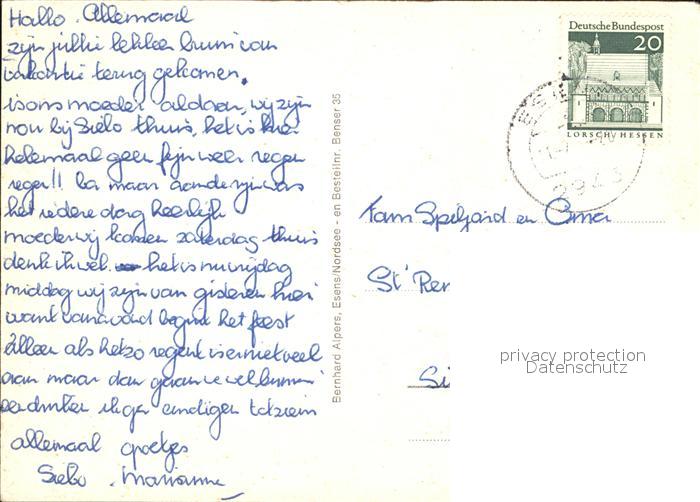 Hallo. Allemaal
zijn jullie lekker bruin van
vakantie terug gekomen.
is ons moeder al daar, wij zijn
nou bij Siebo thuis, het is hier
helemaal geen fijn weer regen
regen!! ba maar aan de rijn was
het iedere dag heerlijk
moeder wij komen zaterdag thuis
denk ik wel. het is nu vrijdag
middag wij zijn van gisteren hier
want vanavond begint het feest
alleen als het zo regent is er niet veel
aan maar dan gaan we wel binnen
allemaal groetjes
Siebo. Marianne
Bernhard Alpers, Esens/Nordsee - en Bestellnr. Benser 35
Deutsche Bundespost
20
LORSCH/HESSEN
2943
Fam Speljard en Oma
St' Ren
Si
privacy protection
Datenschutz